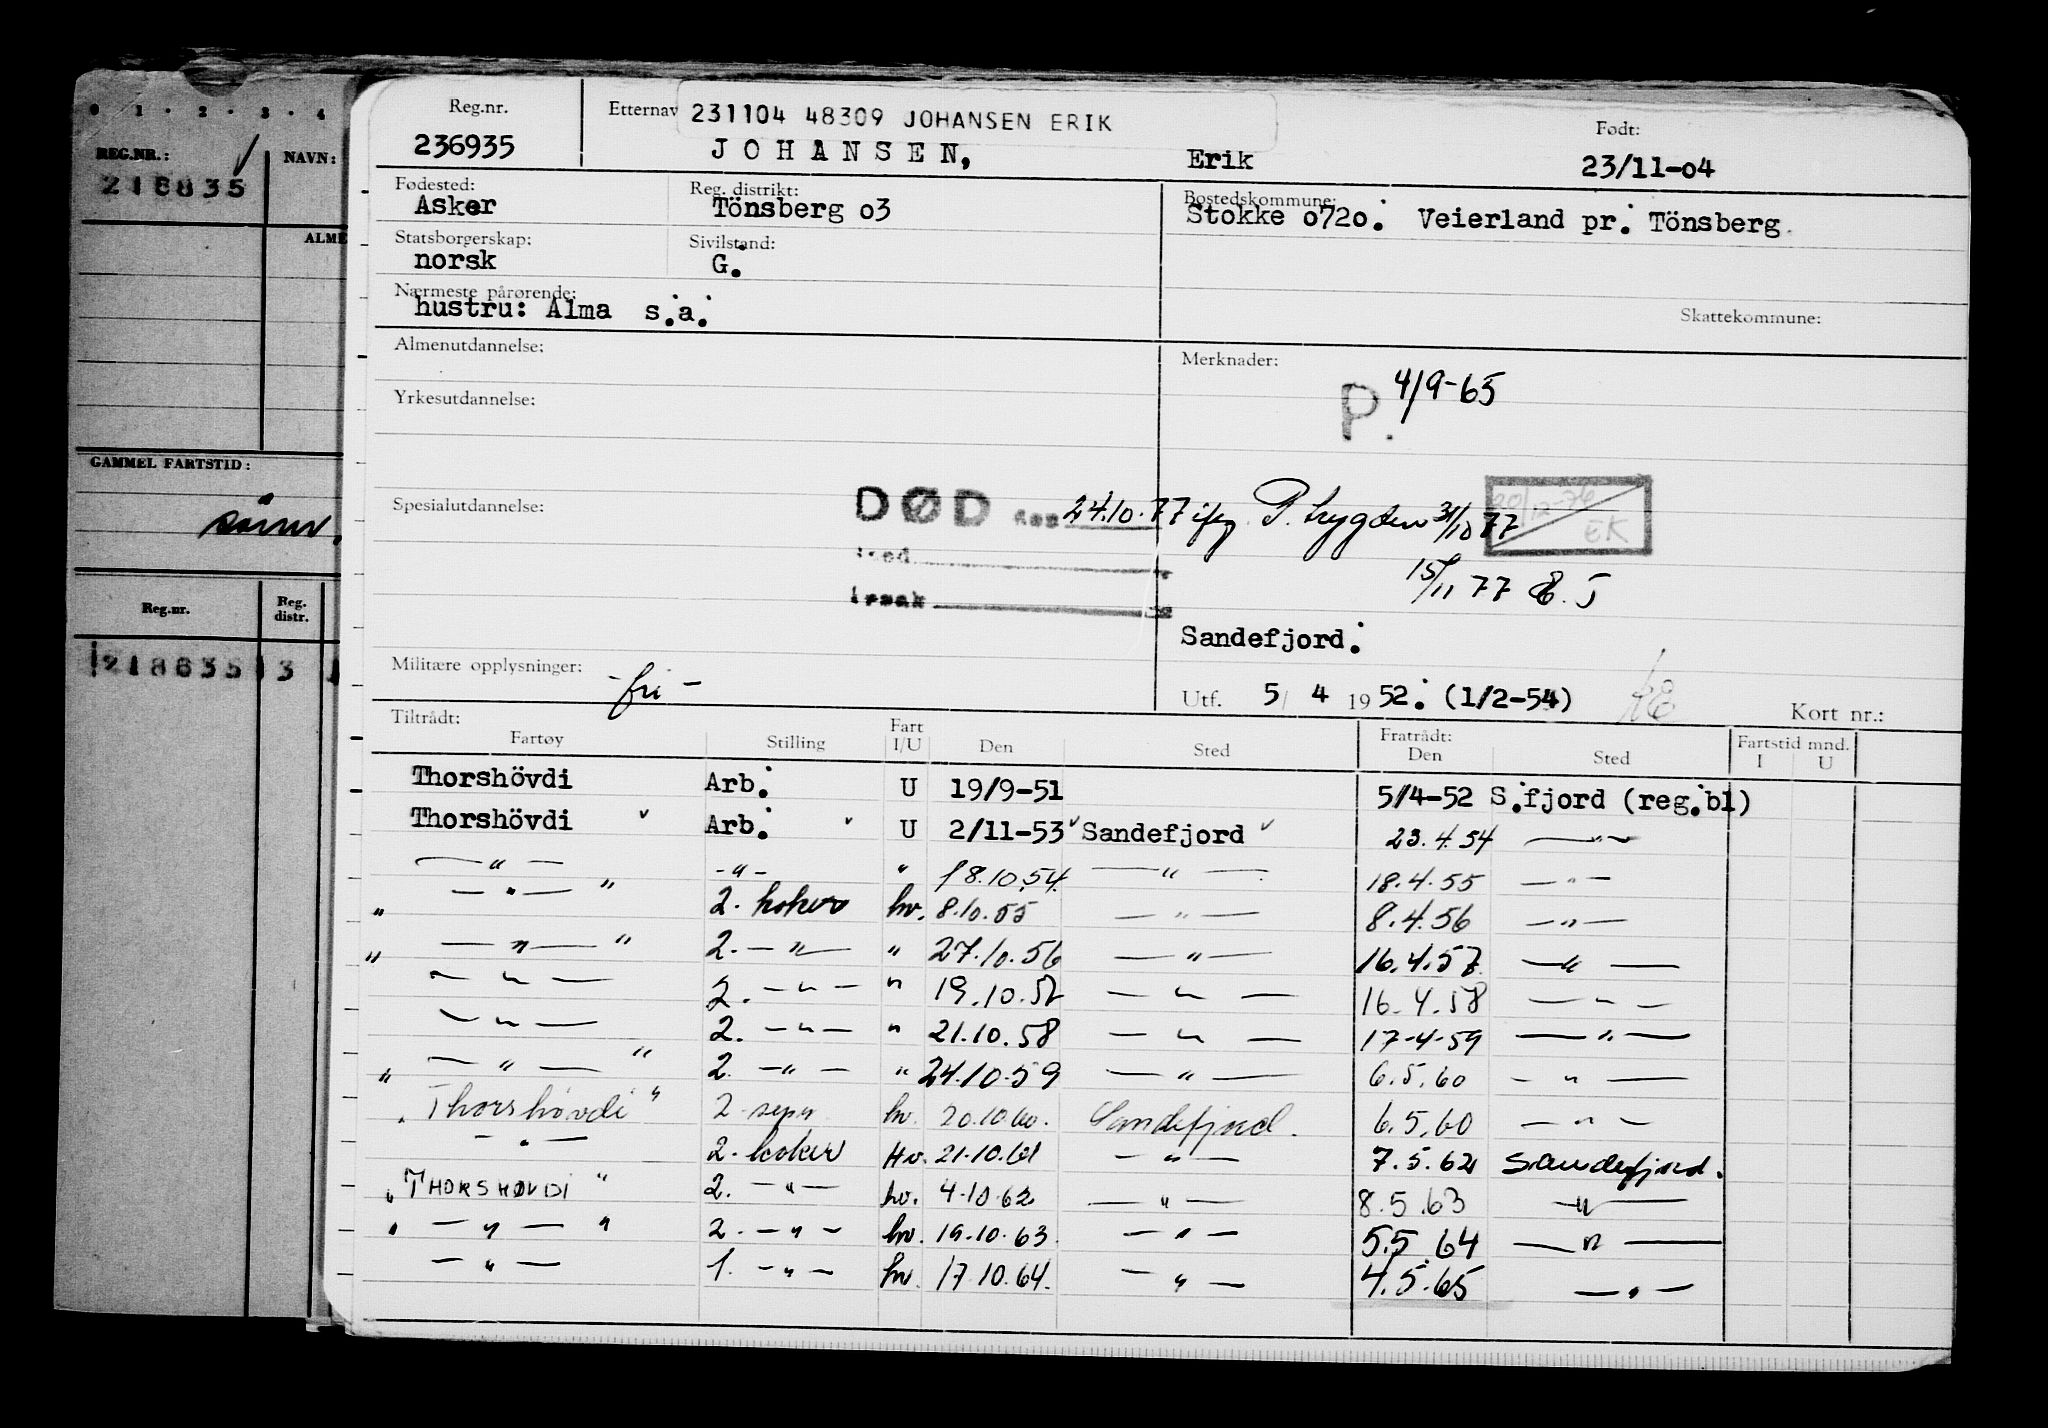 0 1 · 2 · 3 · 4
REG.NR.: NAVN:
218835
ALME
GAMMEL FARTSTID:
Reg.nr. Reg. distr.
218835 3
Reg.nr. Etternav 231104 48309 JOHANSEN ERIK Født:
236935 JOHANSEN, Erik 23/11-o4
Fødested: Reg. distrikt: Bostedskommune:
Asker Tönsberg o3 Stokke o72o. Veierland pr. Tönsberg.
Statsborgerskap: Sivilstand:
norsk G.
Nærmeste pårørende:
hustru: Alma s.a. Skattekommune:
Almenutdannelse: Merknader:
P. 4/9-65
Yrkesutdannelse:
Spesialutdannelse: DØD den 24.10.77 P. 31/10 77 20/12-76 EK
sted
15/11 77 E.J
årsak
Sandefjord.
Militære opplysninger: -fri-
Utf. 5/ 4 1952. (1/2-54) Kort nr.:
Tiltrådt: Fart Fratrådt: Fartstid mnd.
Fartøy Stilling I/U Den Sted Den Sted I U
Thorshövdi Arb. U 19/9-51 5/4-52 S.fjord (reg.bl)
Thorshövdi Arb. U 2/11-53 Sandefjord 23.4.54 —"—
—"— -"- " 18.10.54 —"— 18.4.55 —"—
" —"— " 2. koker hv. 8.10.55 —"— 8.4.56 —"—
" —"— " 2. —"— " 27.10.56 —"— 16.4.57 —"—
—"— 2. —"— " 19.10.57 —"— 16.4.58 —"—
—"— 2. —"— " 21.10.58 —"— 17-4-59 —"—
" —"— " 2. —"— " 24.10.59 —"— 6.5.60 —"—
" Thorshövdi " 2 hv. 20.10.60. Sandefjord. 6.5.60 —"—
—"— 2. koker Hv. 21.10.61 —"— 7.5.62 Sandefjord.
" THORSHØVDI " 2. —"— hv. 4.10.62 —"— 8.5.63 —"—
" —"— " 2. —"— hv. 19.10.63. —"— 5.5.64 —"—
—"— 1. —"— hv. 17.10.64. —"— 4.5.65 —"—